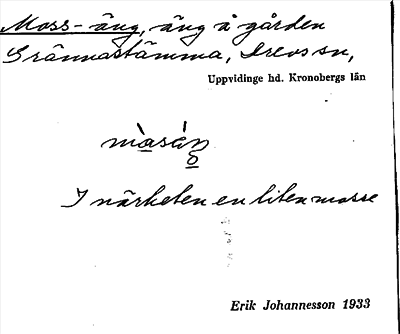 Moss-äng, äng å gården
Grännastämma, Drevs sn,
Uppvidinge hd. Kronobergs län
I närheten en liten mosse
Erik Johannesson 1933